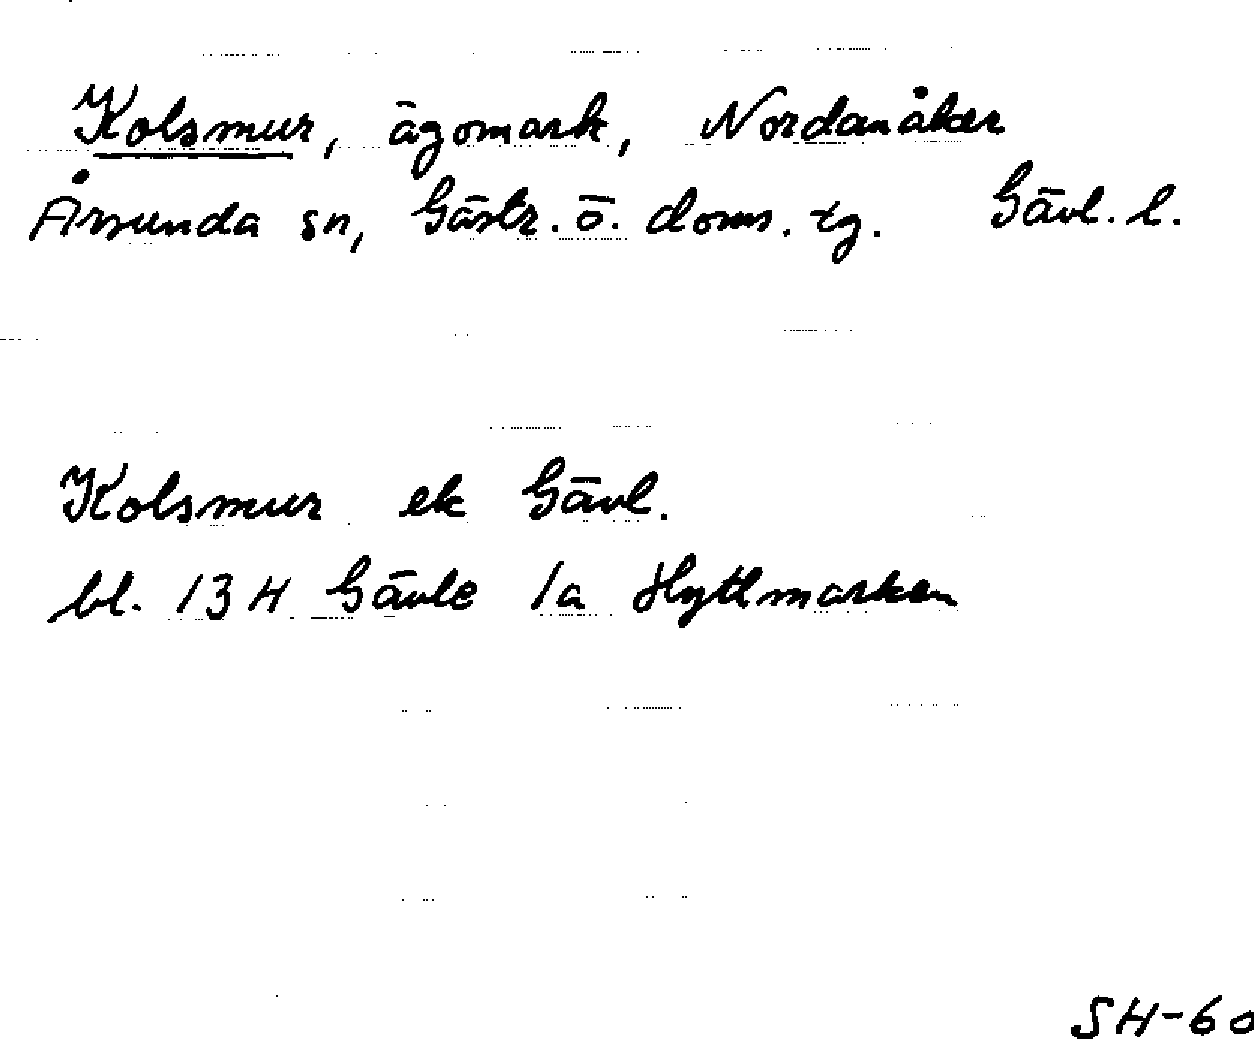 Kolsmur, ägomark, Nordanåker
Årsunda sn, Gästr. ö. doms. tg. Gävl. l.
Kolsmur ek Gävl.
bl. 13H Gävle 1a Hyttmarken
SH-60